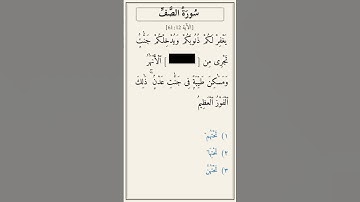 سُورَةُ الصَّفِّ
[الآية 12:61]
يَغْفِرْ لَكُمْ ذُنُوبَكُمْ وَيُدْخِلْكُمْ جَنَّٰتٍ
تَجْرِى مِن [ ] ٱلْأَنْهَٰرُ
وَمَسَٰكِنَ طَيِّبَةً فِى جَنَّٰتِ عَدْنٍ ۚ ذَٰلِكَ
ٱلْفَوْزُ ٱلْعَظِيمُ
١) تَحْتِهِمْ
٢) تَحْتِهَا
٣) تَحْتِهِنَّ